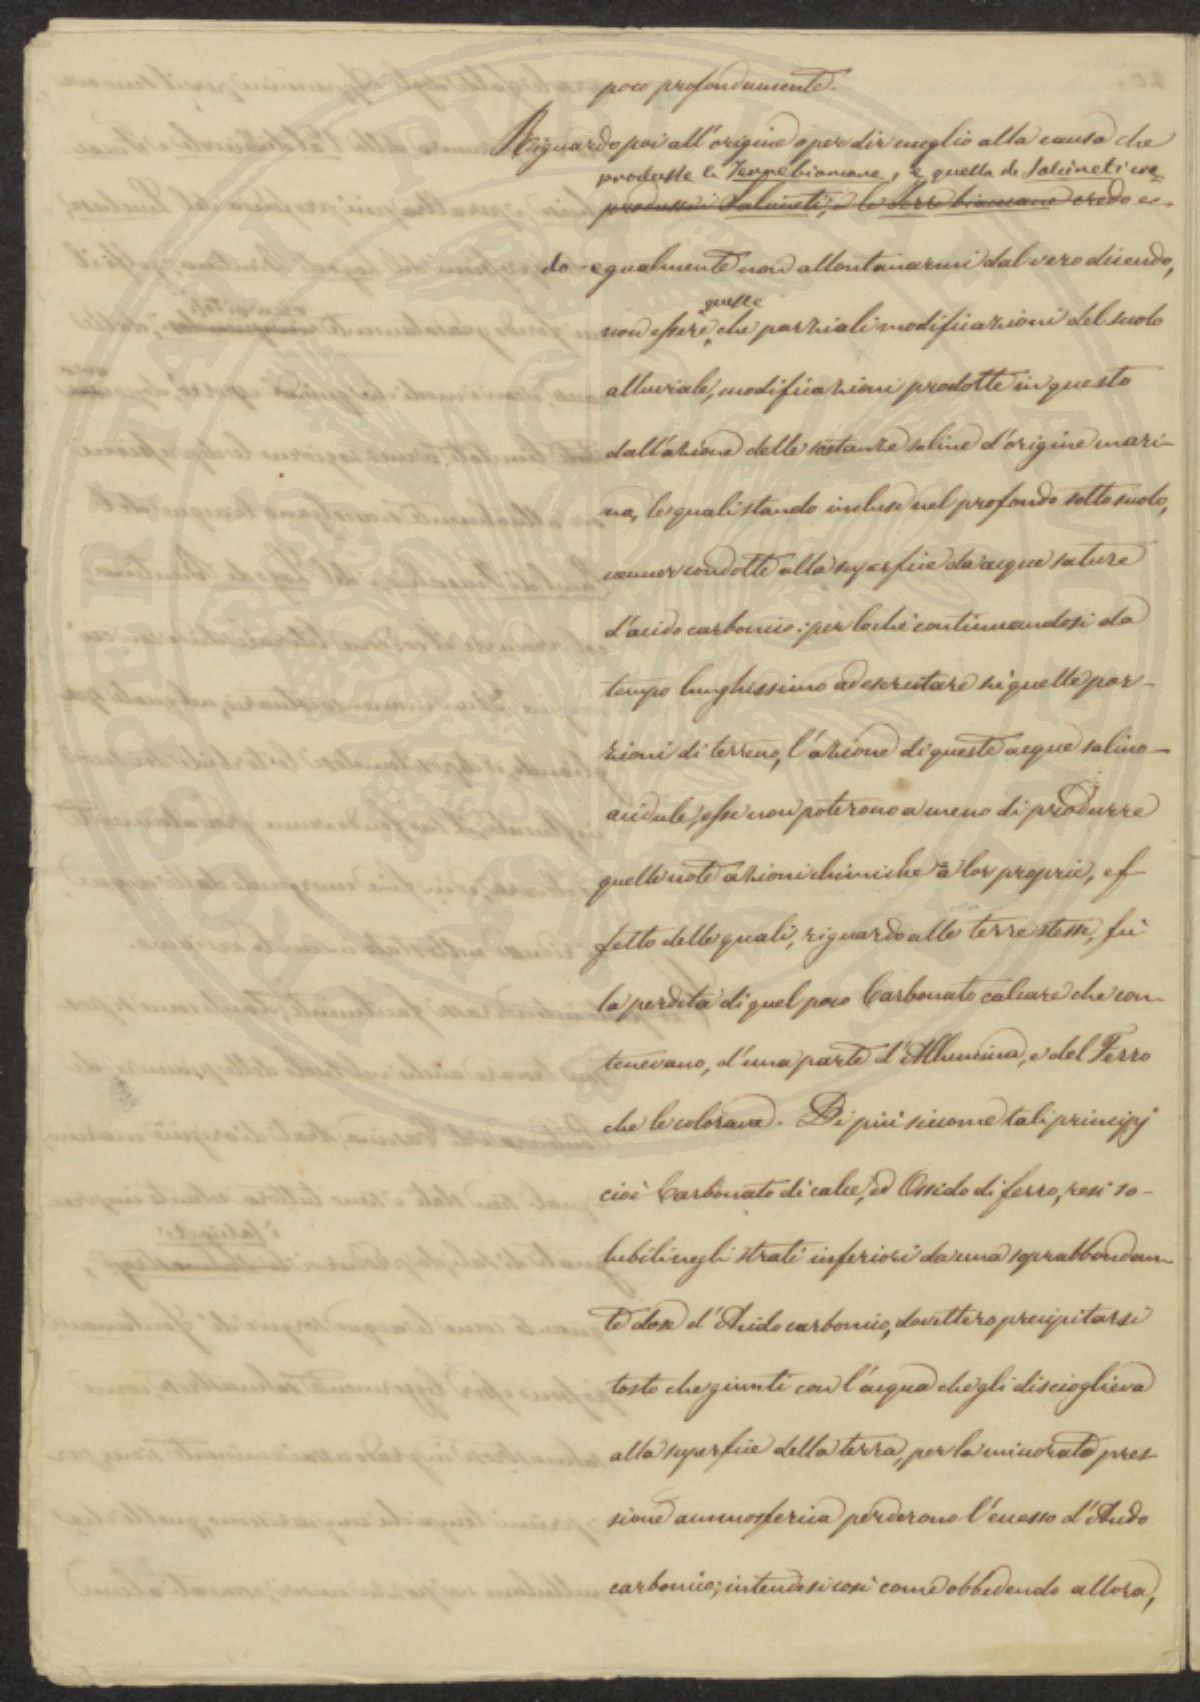 poco profondamente.
Riguardo poi all'origine o per dir meglio alla causa che
produsse le Terrebiancane, e quella de Salcineti cre=
produssi i Salcineti, e le Terre biancane credo e-
do egualmente non allontanarmi dal vero dicendo,
queste
non essere, che parziali modificazioni del suolo
alluviale, modificazioni prodotte in questo
dall'azione delle sostanze saline d'origine mari-
na, le quali stando incluse nel profondo sotto suolo,
venner condotte alla superficie da acque sature
d'acido carbonico: per loché continuandosi da
tempo lunghissimo ad esercitare su quelle por-
zioni di terreno, l'azione di queste acque salino-
acidule, esse non poterono a meno di produrre
quelle note azioni chimiche a lor proprie, ef-
fetto delle quali, riguardo alle terre stesse, fù
la perdita di quel poco Carbonato calcare che con-
tenevano, d'una parte d'Allumina, e del Ferro
che le colorava. Di più siccome tali principj
cioè Carbonato di calce, ed Ossido di ferro, resi so-
lubili negli strati inferiori da una soprabbondan-
te dose d'Acido carbonico, dovettero precipitarsi
tosto che giunti con l'acqua che gli discioglieva
alla superficie della terra, per la minorata pres-
sione ammosferica perderono l'eccesso d'Acido
carbonico; intendesi così come obbedendo allora,